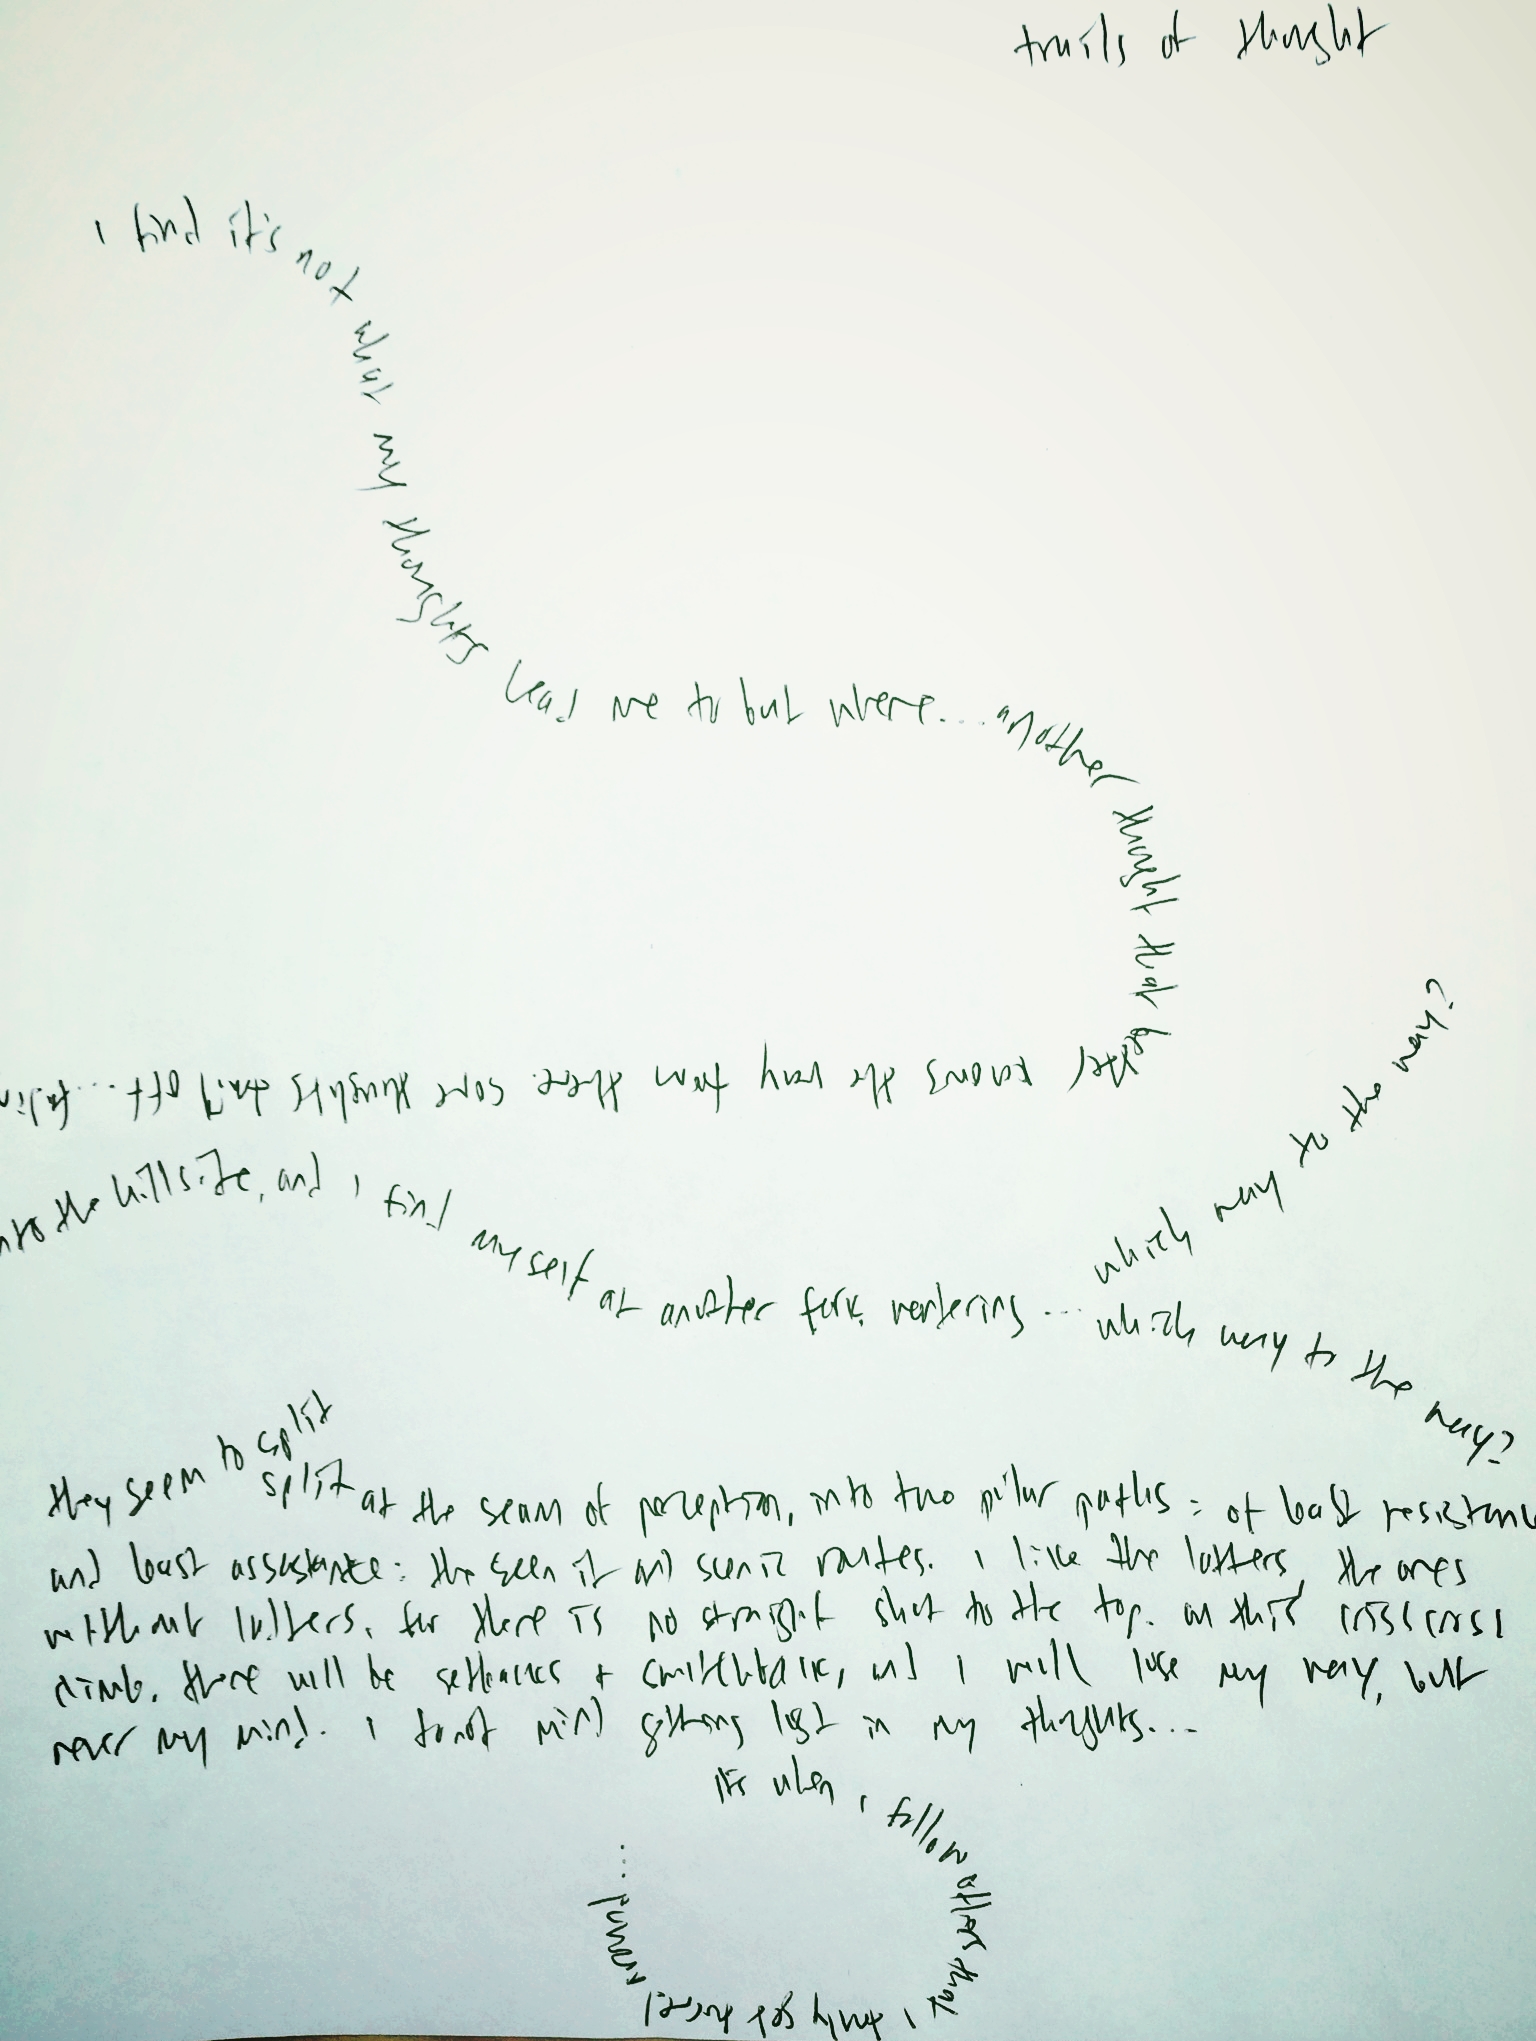 trails of thought
I find it's not what my thoughts lead me to but where... another thought that better knows the way from there. some thoughts trail off... fallin
into the hillside, and I find myself at another fork, wondering...
which way to the way?
which way to the way?
they seem to split
split at the seam of perception, into two paths: of least resistance
and least assistance: the seen it and scenic routes. I like the latters, the ones
without ladders. for there is no straight shot to the top. on this crisscross
climb. there will be setbacks + switchback, and I will lose my way, but
never my mind. I do not mind getting lost in my thoughts...
It's when I follow others that I truly get turned around...